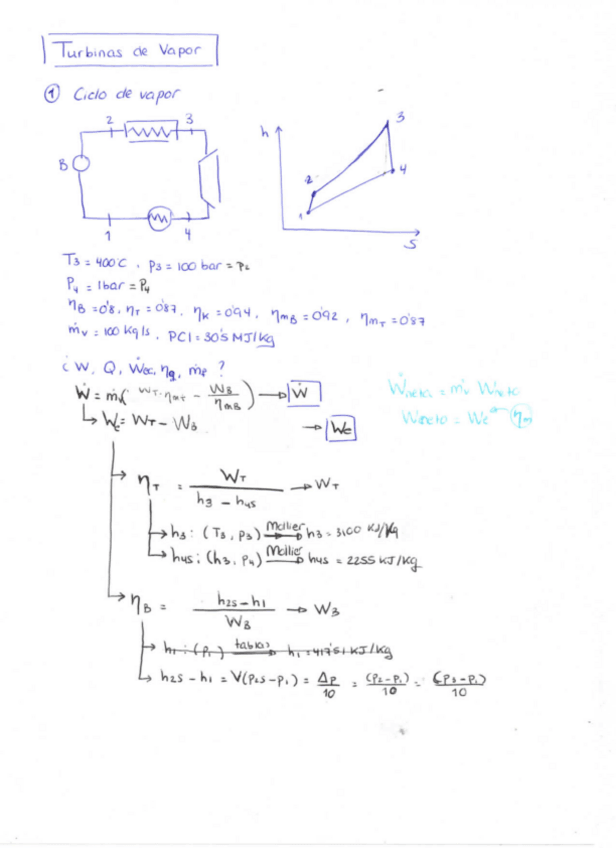 Turbinas de Vapor
① Ciclo de vapor
2 3
B
1 4
h 3
2 4
1
S
T3 = 400C . P3 = 100 bar = P2
P4 = 1bar = P4
ηB = 0'8, ηT = 0'87, ηK = 0'94, ηmB = 0'92, ηmT = 0'87
ṁv = 100 Kg/s, PCI = 30'5 MJ/kg
¿ W, Q, Ẇec, ηq, ṁf ?
Ẇ = ṁv( WT·ηmT - WB/ηmB ) → Ẇ
Ẇneta = ṁv Wneto
↳ Wc = WT - WB → Wc
Wneto = Wc ηm
→ ηT = WT / (h3 - h4s) → WT
→ h3 : (T3, P3) Mollier → h3 = 3100 KJ/Kg
→ h4s : (h3, P4) Mollier → h4s = 2255 KJ/Kg
→ ηB = (h2s - h1) / WB → WB
→ h1 : (P1) tablas → h1 = 417'51 KJ/kg
↳ h2s - h1 = V(P2s - P1) = Δp/10 = (P2-P1)/10 = (P3-P1)/10